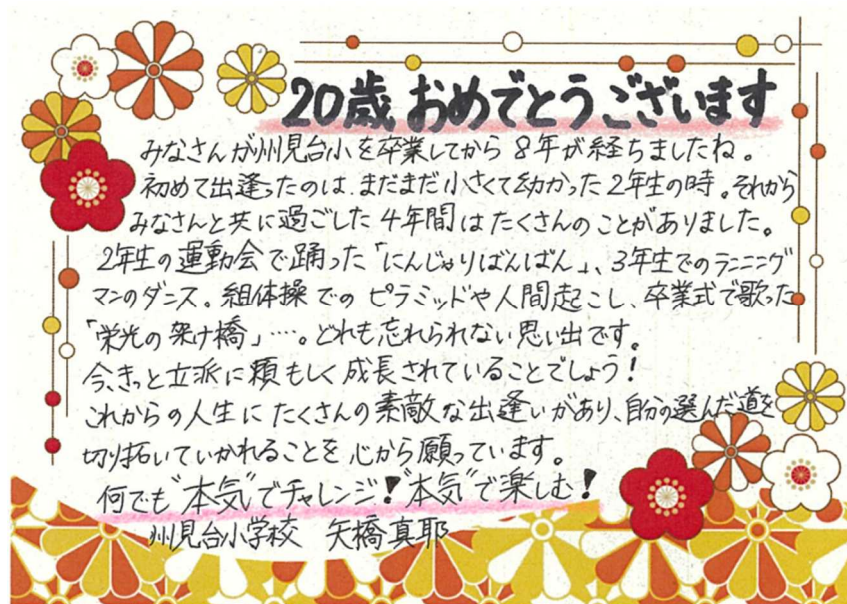 20歳、おめでとうございます
みなさんが州見台小を卒業してから8年が経ちましたね。
初めて出逢ったのは、まだまだ小さくて幼かった2年生の時。それから
みなさんと共に過ごした4年間はたくさんのことがありました。
2年生の運動会で踊った「にんじゃりばんばん」、3年生でのランニング
マンのダンス。組体操でのピラミッドや人間起こし、卒業式で歌った
「栄光の架け橋」…。どれも忘れられない思い出です。
今、きっと立派に頼もしく成長されていることでしょう!
これからの人生にたくさんの素敵な出逢いがあり、自分の選んだ道を
切り拓いていかれることを心から願っています。
何でも"本気"でチャレンジ!"本気"で楽しむ!
州見台小学校 矢橋真耶